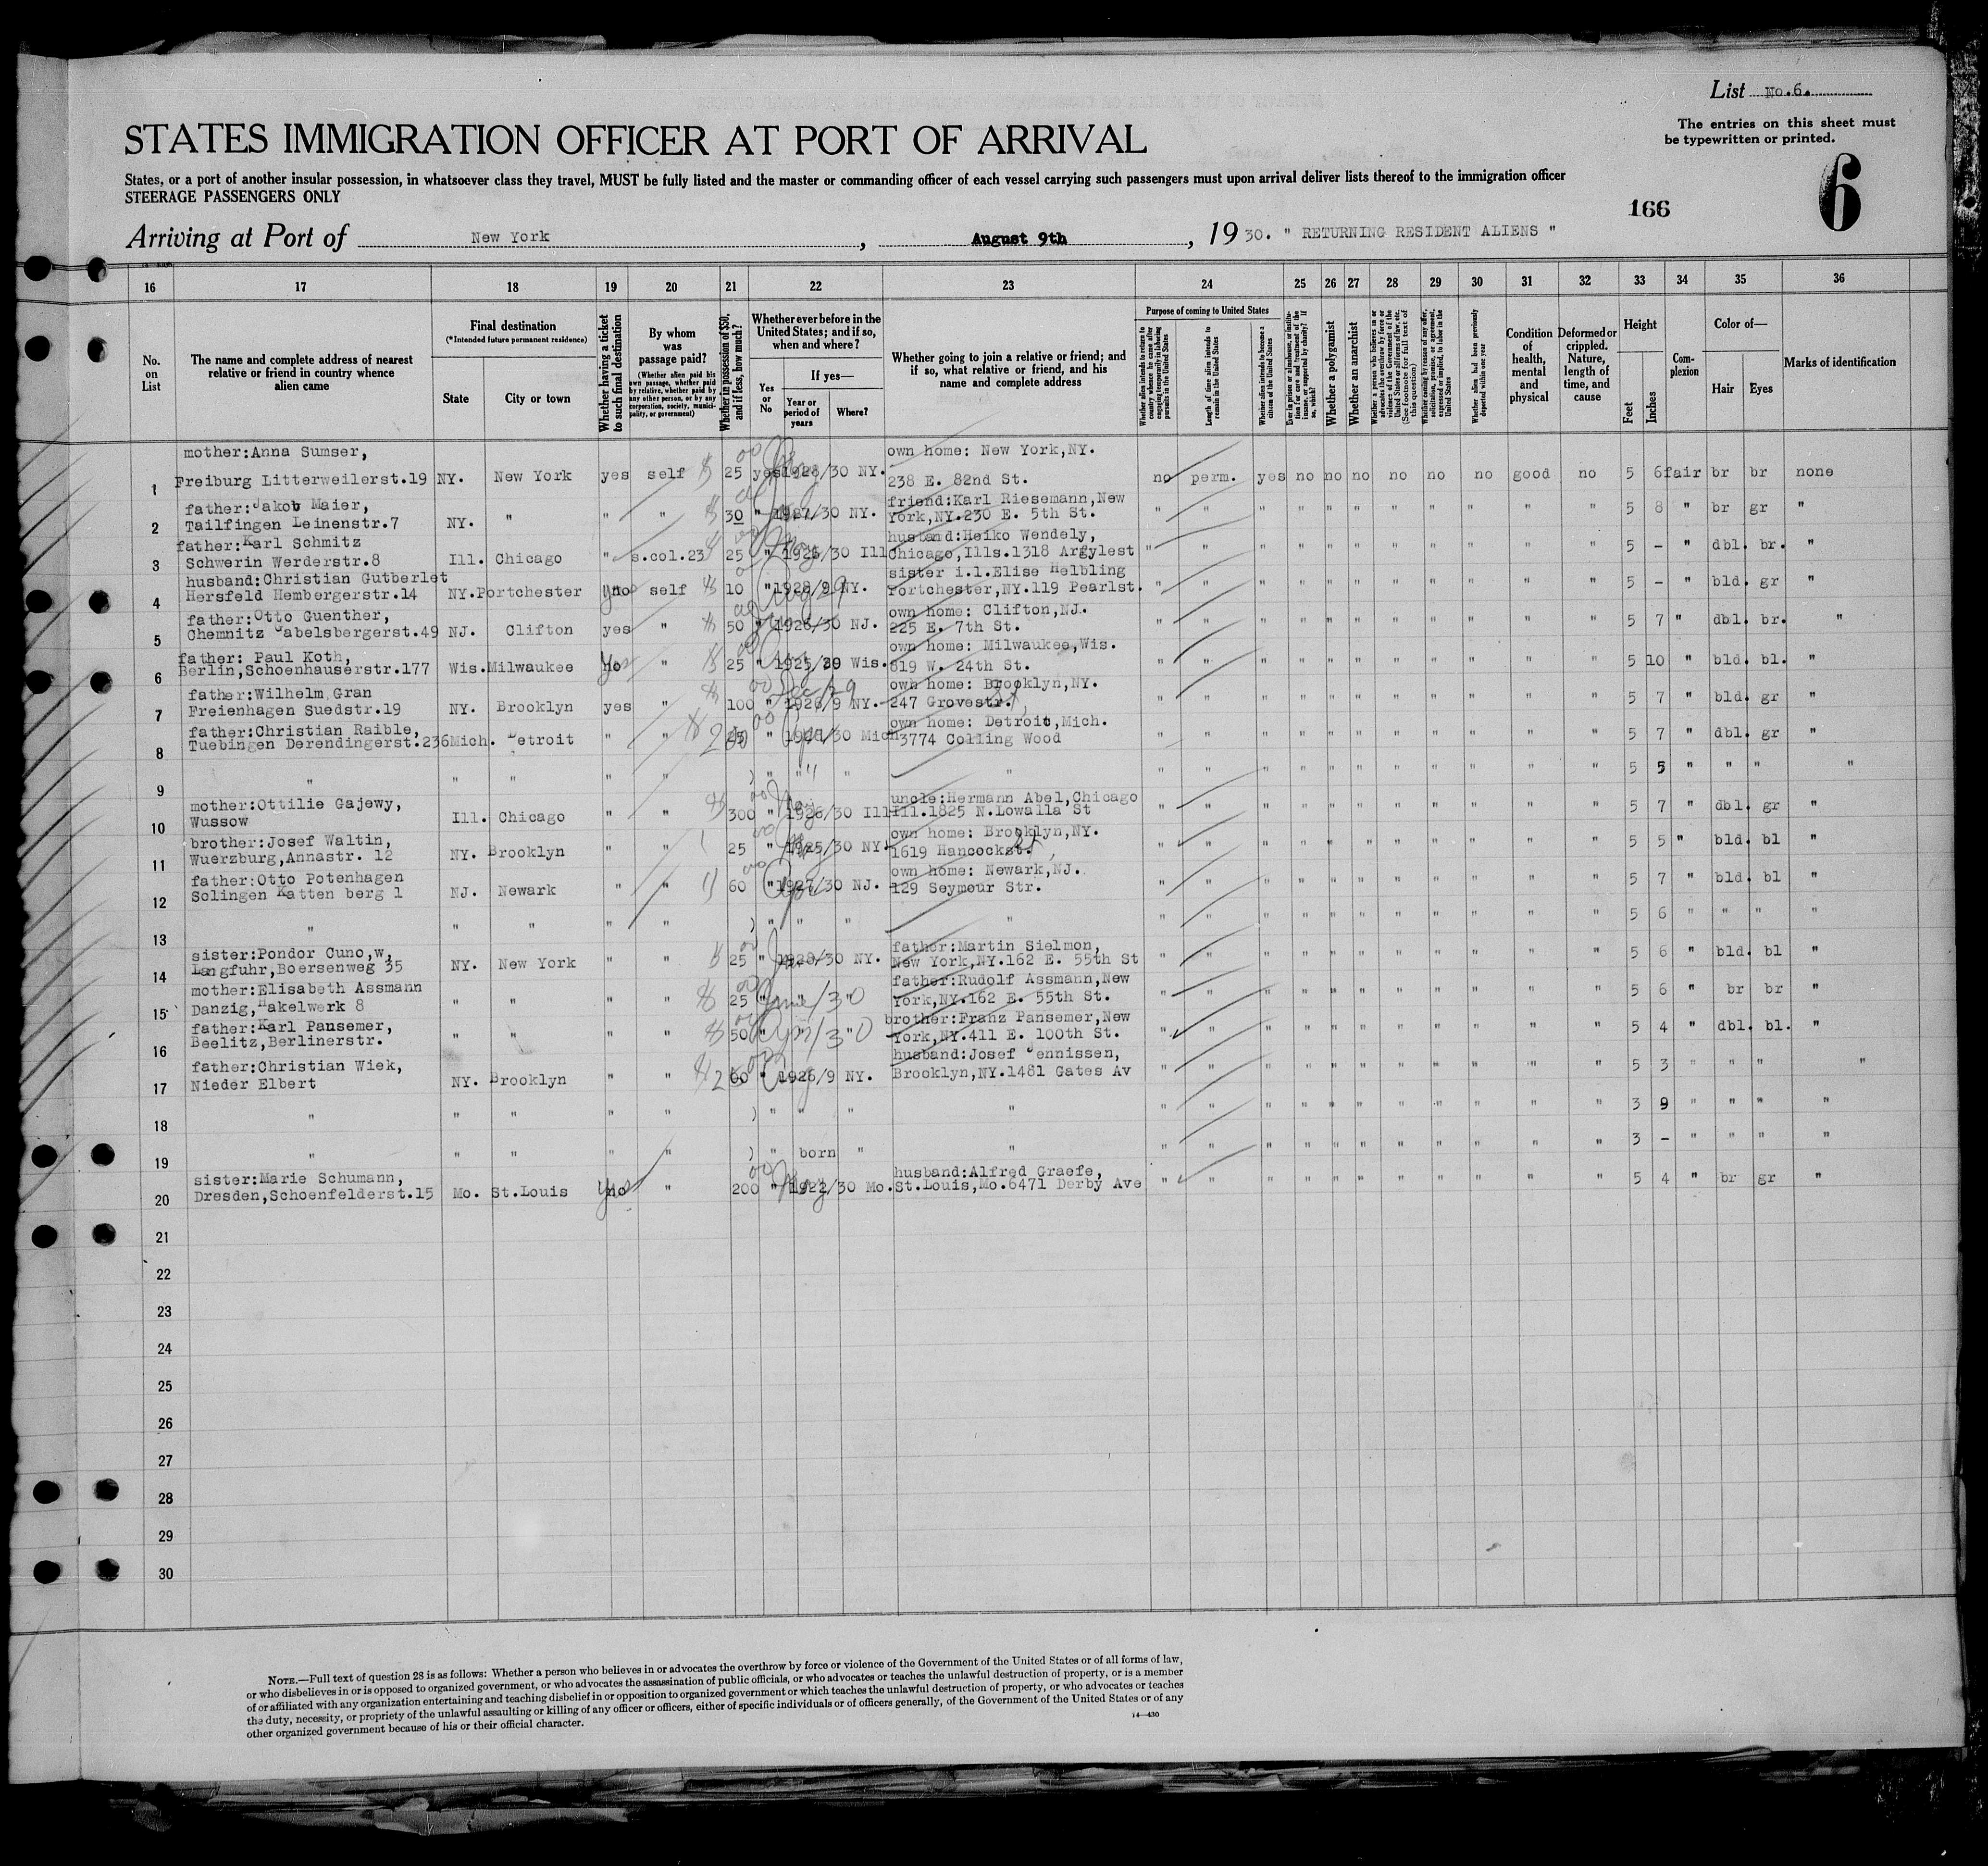 List No.6.
The entries on this sheet must
be typewritten or printed.
STATES IMMIGRATION OFFICER AT PORT OF ARRIVAL
6
States, or a port of another insular possession, in whatsoever class they travel, MUST be fully listed and the master or commanding officer of each vessel carrying such passengers must upon arrival deliver lists thereof to the immigration officer
STEERAGE PASSENGERS ONLY
166
Arriving at Port of New York, August 9th, 19 30. " RETURNING RESIDENT ALIENS "
16 17 18 19 20 21 22 23 24 25 26 27 28 29 30 31 32 33 34 35 36
No. on List
The name and complete address of nearest relative or friend in country whence alien came
Final destination
(*Intended future permanent residence)
State
City or town
Whether having a ticket to such final destination
By whom was passage paid?
(Whether alien paid his own passage, whether paid by relative, whether paid by any other person, or by any corporation, society, municipality, or government)
Whether in possession of $50, and if less, how much?
Whether ever before in the United States; and if so, when and where?
Yes or No
If yes—
Year or period of years
Where?
Whether going to join a relative or friend; and if so, what relative or friend, and his name and complete address
Purpose of coming to United States
Whether alien intends to return to country whence he came after engaging temporarily in laboring pursuits in the United States
Length of time alien intends to remain in the United States
Whether alien intends to become a citizen of the United States
Ever in prison or almshouse, or institution for care and treatment of the insane, or supported by charity? If so, which?
Whether a polygamist
Whether an anarchist
Whether a person who believes in or advocates the overthrow by force or violence of the Government of the United States or all forms of law, etc. (See footnote for full text of this question)
Whether coming by reason of any offer, solicitation, promise, or agreement, expressed or implied, to labor in the United States
Whether alien had been previously deported within one year
Condition of health, mental and physical
Deformed or crippled. Nature, length of time, and cause
Height
Feet
Inches
Complexion
Color of—
Hair
Eyes
Marks of identification
mother:Anna Sumser, own home: New York,NY.
1 Freiburg Litterweilerst.19 NY. New York yes self $ 25 yes 1928/30 NY. 238 E. 82nd St. no perm. yes no no no no no no good no 5 6 fair br br none
father:Jakob Maier, friend:Karl Riesemann,New
2 Tailfingen Leinenstr.7 NY. " " " $ 30 " 1927/30 NY. York,NY.230 E. 5th St. " " " " " " " " " " " 5 8 " br gr "
father:Karl Schmitz husband:Heiko Wendely,
3 Schwerin Werderstr.8 Ill. Chicago " s.col.23 $ 25 " 1926/30 Ill Chicago,Ills.1318 Argylest " " " " " " " " " " " 5 - " dbl. br. "
husband:Christian Gutberlet sister i.l.Elise Helbling
4 Hersfeld Hembergerstr.14 NY. Portchester no self $ 10 " 1928/9 NY. Portchester,NY.119 Pearlst. " " " " " " " " " " " 5 - " bld. gr "
father:Otto Guenther, own home: Clifton,NJ.
5 Chemnitz Jabelsbergerst.49 NJ. Clifton yes " $ 50 " 1926/30 NJ. 225 E. 7th St. " " " " " " " " " " " 5 7 " dbl. br. "
father: Paul Koth, own home: Milwaukee,Wis.
6 Berlin,Schoenhauserstr.177 Wis. Milwaukee no Yes " $ 25 " 1925/30 Wis. 619 W. 24th St. " " " " " " " " " " " 5 10 " bld. bl. "
father:Wilhelm Gran Dec/29 own home: Brooklyn,NY.
7 Freienhagen Suedstr.19 NY. Brooklyn yes " $ 100 " 1926/9 NY. 247 Grovestr. St, " " " " " " " " " " " 5 7 " bld. gr "
father:Christian Raible, own home: Detroit,Mich.
8 Tuebingen Derendingerst.236 Mich. Detroit " " $ 200 " /30 Mich 3774 Colling Wood " " " " " " " " " " " 5 7 " dbl. gr "
9 " " " " " ) " " " " " " " " " " " " " " " " 5 5 " " " "
mother:Ottilie Gajewy, uncle:Hermann Abel,Chicago
10 Wussow Ill. Chicago " " $ 300 " 1926/30 Ill Ill.1825 N.Lowalla St " " " " " " " " " " " 5 7 " dbl. gr "
brother:Josef Waltin, own home: Brooklyn,NY.
11 Wuerzburg,Annastr. 12 NY. Brooklyn " " 25 " 1925/30 NY. 1619 Hancockst. St, " " " " " " " " " " " 5 5 " bld. bl "
father:Otto Potenhagen own home: Newark,NJ.
12 Solingen Katten berg 1 NJ. Newark " " 60 " 1927/30 NJ. 129 Seymour Str. " " " " " " " " " " " 5 7 " bld. bl "
13 " " " " " ) " " " " " " " " " " " " " " " " 5 6 " " " "
sister:Pondor Cuno,w, father:Martin Sielmon,
14 Langfuhr,Boersenweg 35 NY. New York " " $ 25 " 1928/30 NY. New York,NY.162 E. 55th St " " " " " " " " " " " 5 6 " bld. bl "
mother:Elisabeth Assmann father:Rudolf Assmann,New
15 Danzig,Hakelwerk 8 " " " " $ 25 " June/30 " York,NY.162 E. 55th St. " " " " " " " " " " " 5 6 " br br "
father:Karl Pansemer, brother:Franz Pansemer,New
16 Beelitz,Berlinerstr. " " " " $ 50 " Apr/30 " York,NY.411 E. 100th St. " " " " " " " " " " " 5 4 " dbl. bl. "
father:Christian Wiek, husband:Josef Jennissen,
17 Nieder Elbert NY. Brooklyn " " $ 200 " 1926/9 NY. Brooklyn,NY.1481 Gates Av " " " " " " " " " " " 5 3 " " " "
18 " " " " " ) " " " " " " " " " " " " " " " " 3 9 " " " "
19 " " " " " ) " born " " " " " " " " " " " " " " 3 - " " " "
sister:Marie Schumann, husband:Alfred Graefe,
20 Dresden,Schoenfelderst.15 Mo. St.Louis no Yes " 200 " 1922/30 Mo. St.Louis,Mo.6471 Derby Ave " " " " " " " " " " " 5 4 " br gr "
21
22
23
24
25
26
27
28
29
30
NOTE.—Full text of question 28 is as follows: Whether a person who believes in or advocates the overthrow by force or violence of the Government of the United States or of all forms of law,
or who disbelieves in or is opposed to organized government, or who advocates the assassination of public officials, or who advocates or teaches the unlawful destruction of property, or is a member
of or affiliated with any organization entertaining and teaching disbelief in or opposition to organized government or which teaches the unlawful destruction of property, or who advocates or teaches
the duty, necessity, or propriety of the unlawful assaulting or killing of any officer or officers, either of specific individuals or of officers generally, of the Government of the United States or of any
other organized government because of his or their official character.
14—430